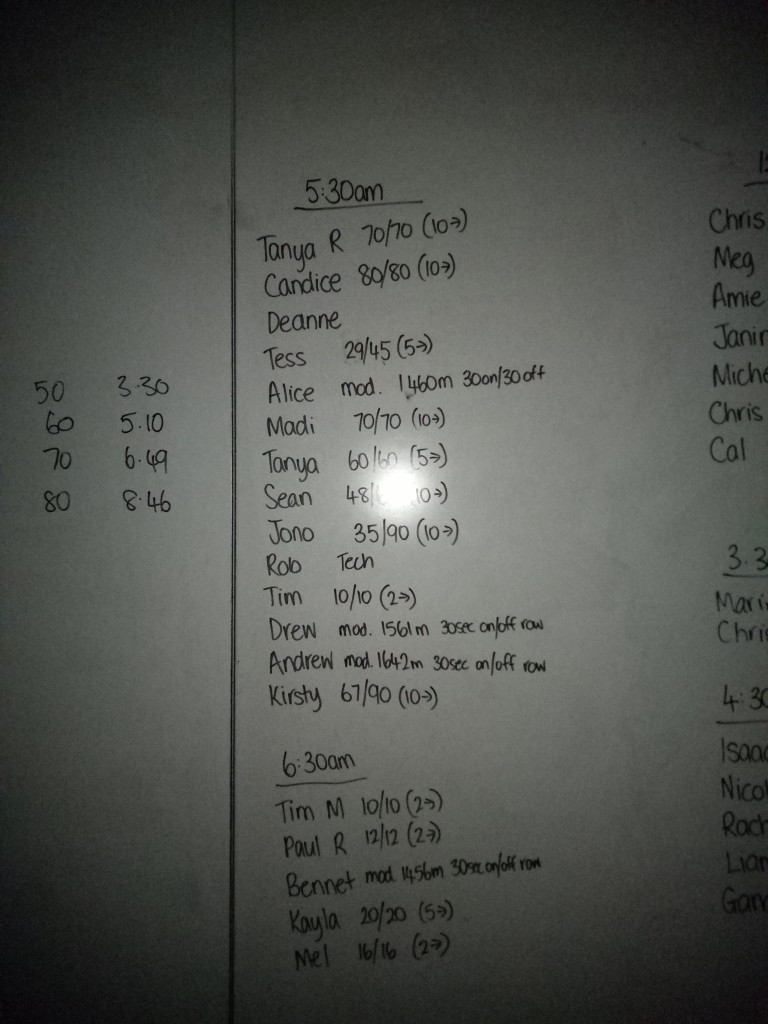 50 3.30
60 5.10
70 6.49
80 8.46
5:30am
Tanya R 70/70 (10→)
Candice 80/80 (10→)
Deanne
Tess 29/45 (5→)
Alice mod. 1460m 30on/30off
Madi 70/70 (10→)
Tanya 60/60 (5→)
Sean 48/ 10→)
Jono 35/90 (10→)
Rob Tech
Tim 10/10 (2→)
Drew mod. 1561m 30sec on/off row
Andrew mod. 1642m 30sec on/off row
Kirsty 67/90 (10→)
6:30am
Tim M 10/10 (2→)
Paul R 12/12 (2→)
Bennet mod 1456m 30sec on/off row
Kayla 20/20 (5→)
Mel 16/16 (2→)
Chris
Meg
Amie
Chris
Cal
4:30